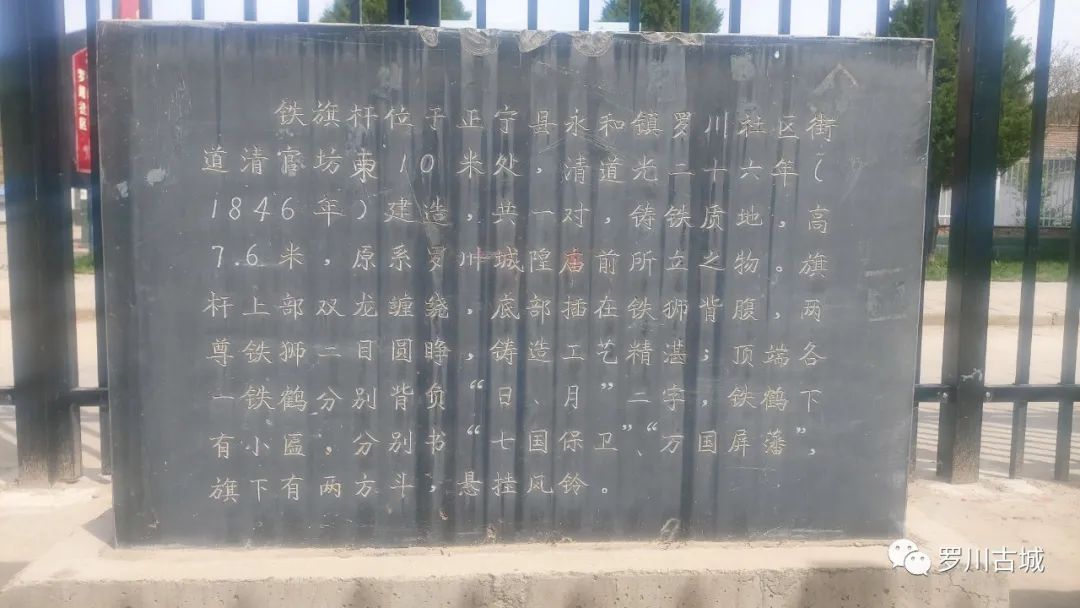 铁旗杆位于正宁县永和镇罗川社区街
道清官坊東10米处，清道光二十六年（
1846年）建造，共一对，铸铁质地，高
7.6米，原系罗川城隍庙前所立之物。旗
杆上部双龙缠绕，底部插在铁狮背腹，两
尊铁狮二目圆睁，铸造工艺精湛；顶端各
一铁鹤分别背负“日、月”二字，铁鹤下
有小匾，分别书“七国保卫”、“万国屏藩”，
旗下有两方斗，悬挂风铃。
罗川社区
罗川古城